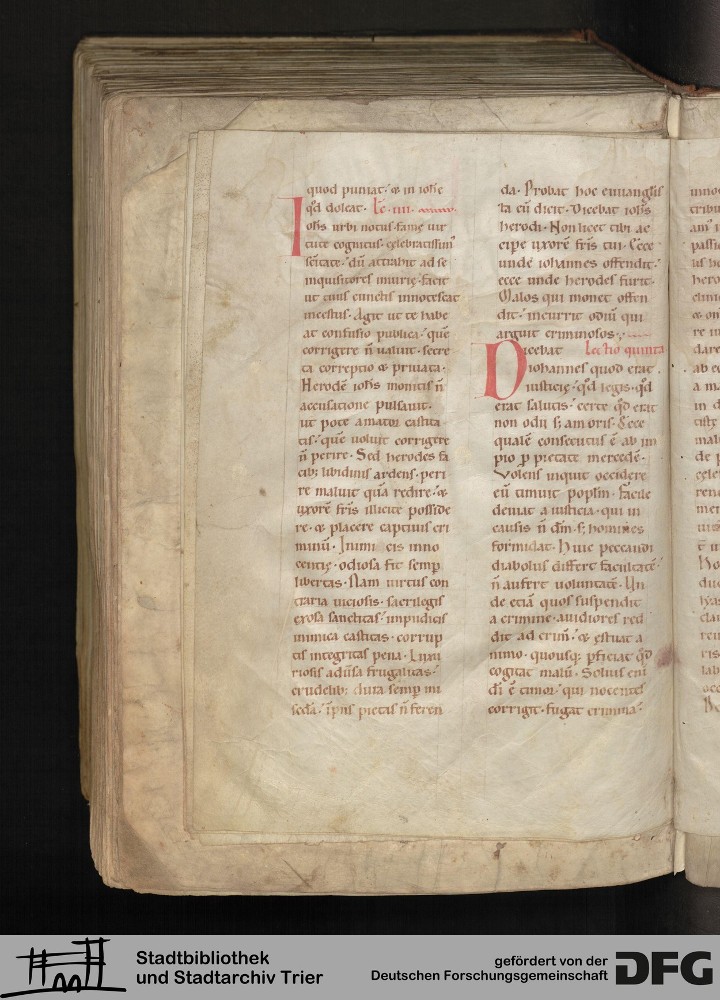 quod puniat· & in ioh̅e
q̅d doleat· Lc̅· iiii·
Ioh̅s urbi notus· fame uir
tute cognitus· celebratissim᷒
sc̅itate· dū attrahit ad se
inquisitores iniurię· facit
ut cuius cunctis innotescat
inqestus· Agit ut te habe
at confusio publica· quē
corrigere n̅ ualuit· secre
ta correptio & priuata·
Herodē ioh̅s monitis n̅
accusatione pulsauit·
ut pote amator castita
tis· quē uoluit corrigere
n̅ perire· Sed herodes fa
cib; libidinis ardens· peri
re maluit quā redire· &
uxorē fr̅is illicite posside
re· & placere captiuis cri
minū· Inimicis inno
centię· odiosa fit semꝑ
libertas· Nam uirtus con
traria uiciosis· sacrilegis
exosa sanctitas· inpudicis
inimica castitas· corrup
tis integritas pena· Luxu
riosis adusa frugalitas·
crudelib; dura semꝑ mi
seda· ip̅iis pietas n̅ feren
da· Probat hoc euuangłis
ta cū dicit· Dicebat ioh̅s
herodi· Non licet tibi ac
cipe uxorē fr̅is tui· Ecce
unde iohannes offendit·
ecce unde herodes furit·
Malos qui monet offen
dit· incurrit odiū qui
arguit criminosos·
Dicebat Lectio quinta
iohannes quod erat
iusticię· q̅d legis· q̅d
erat salutis· certe q̅d erat
non odii s; amoris· Ecce
qualē consecutus ē ab im
pio ꝓ pietate mercedē·
Volens inquit occidere
eū timuit popl̅m· facile
deuiat a iusticia· qui in
causis n̅ dm̅· s; homines
formidat· Huic peccandi
diabolus differt facultatē·
n̅ aufert uoluntatē· Un
de etiā quos suspendit
a crimine· auidiores red
dit ad crim̅· & estuat a
nimo· quousq; ꝑficiat q̅d
cogitat malū· Solus eni
di̅ ē timor· qui nocentes
corrigit· fugat crimina·
Stadtbibliothek
und Stadtarchiv Trier
gefördert von der
Deutschen Forschungsgemeinschaft
DFG